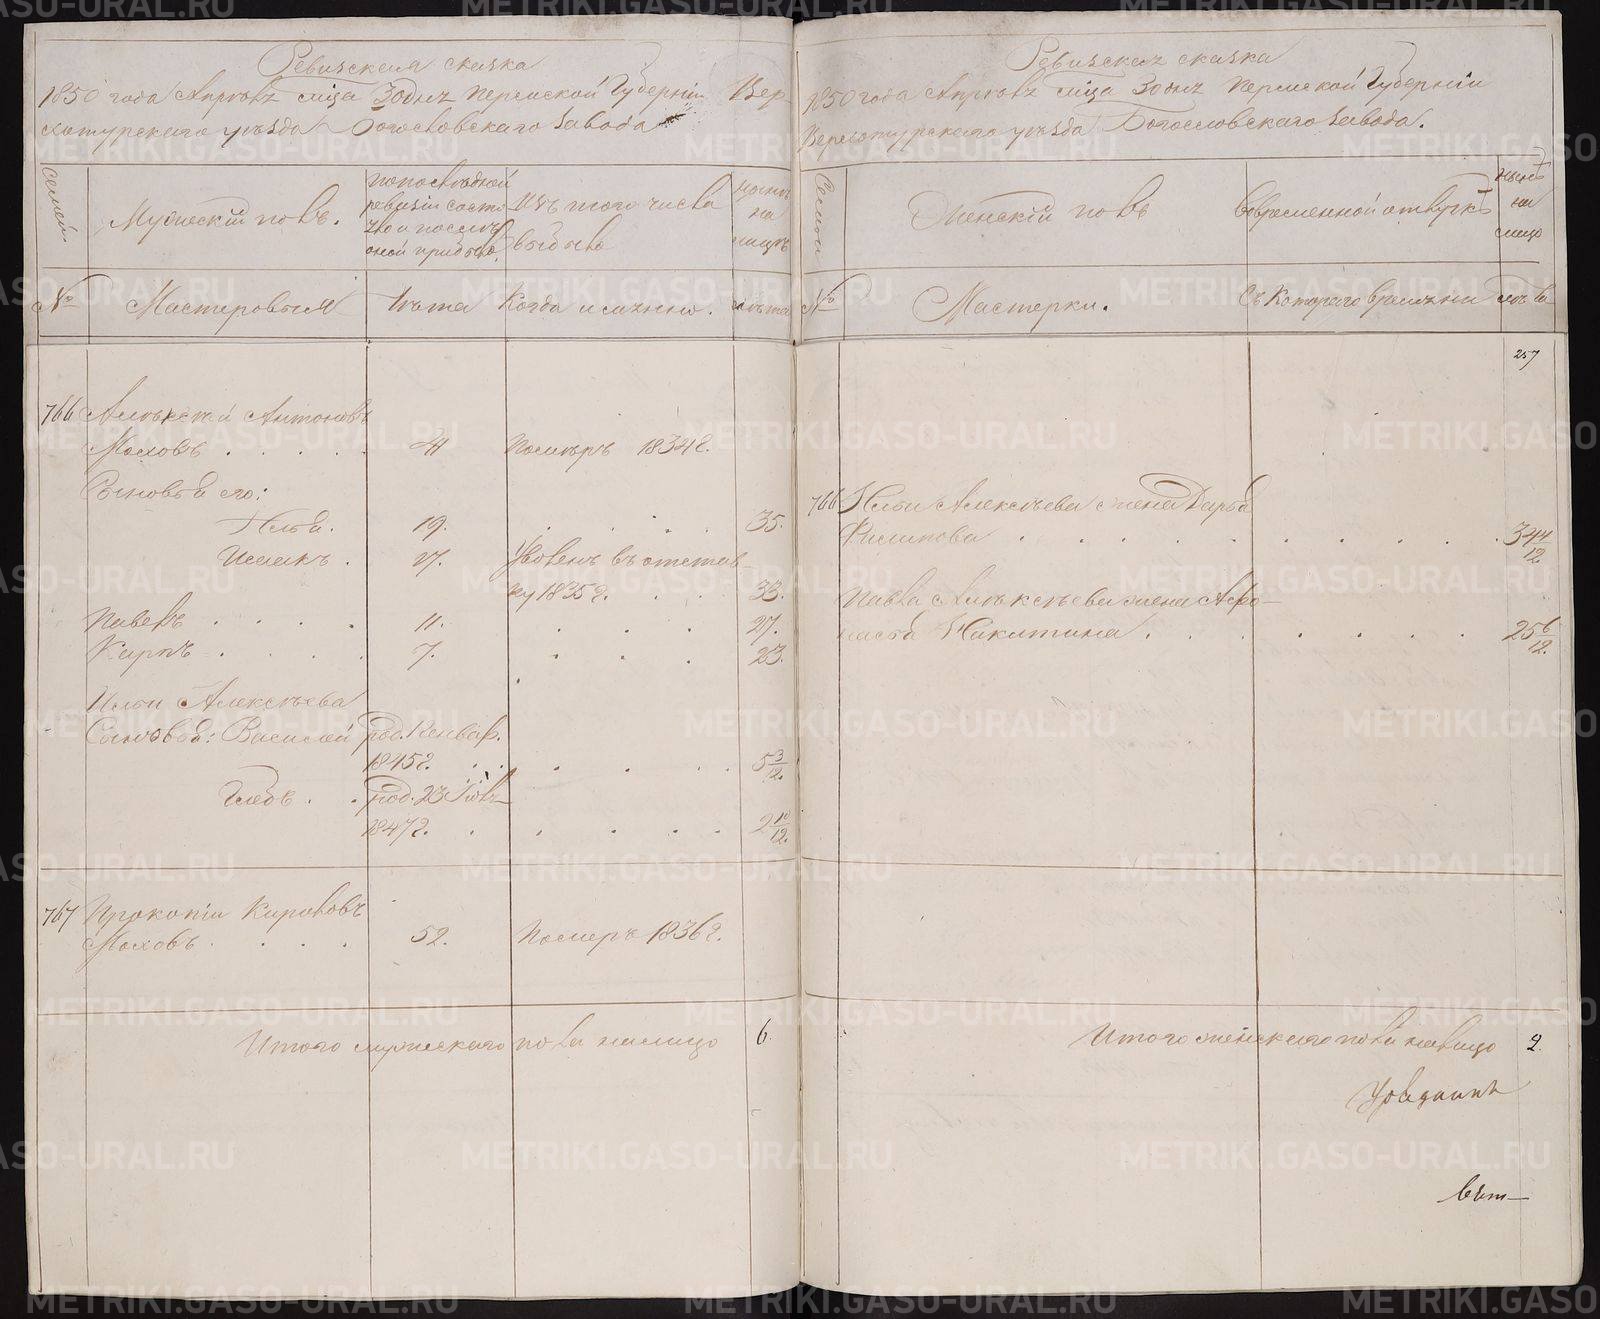 Ревизская сказка
1850 года Апрѣля мѣсяца 30 дня Пермской Губерніи Вер-
хотурскаго уѣзда Богословскаго завода
Семьи
Мужескій полъ.
по послѣдней
ревизіи состо
яло и послѣ
оной прибыло.
Изъ того числа
выбыло
Нынѣ
на
лицо
№
Мастеровыя
Лѣта
Когда именно.
лѣта
766 Алексѣй Антоновъ
Моховъ . . . . . Померъ 1834 г.
Сыновья его:
Илья. 19. . . . . 35.
Исаакъ . 17. Уволенъ въ отстав
ку 1835 г. . . . 33.
Павелъ . . . . 11. . . . 27.
Карпъ . . . . 7. . . . 23.
Ильи Алексѣева
Сыновья: Василій род. Генвар.
1845 г. . . . . . 5 3/12.
Глѣбъ . . род. 23 Іюня
1847 г. . . . . . 2 10/12.
767 Прокопій Кириловъ
Моховъ . . . . 52. Померъ 1836 г.
Итого мужескаго пола налицо 6.
Ревизская сказка
1850 года Апрѣля мѣсяца 30 дня Пермской Губерніи
Верхотурскаго уѣзда Богословскаго завода.
Семьи
Женскій полъ
Во временной отлучкѣ
Нынѣ
на
лицо
№
Мастерки.
Съ котораго времени
лѣта
257
766 Ильи Алексѣева жена Дарья
Филипова . . . . . . . . . 34 4/12
Павла Алексѣева жена Афо-
насья Никитина . . . . . . . 25 6/12.
Итого женскаго пола налицо 2.
METRIKI.GASO-URAL.RU